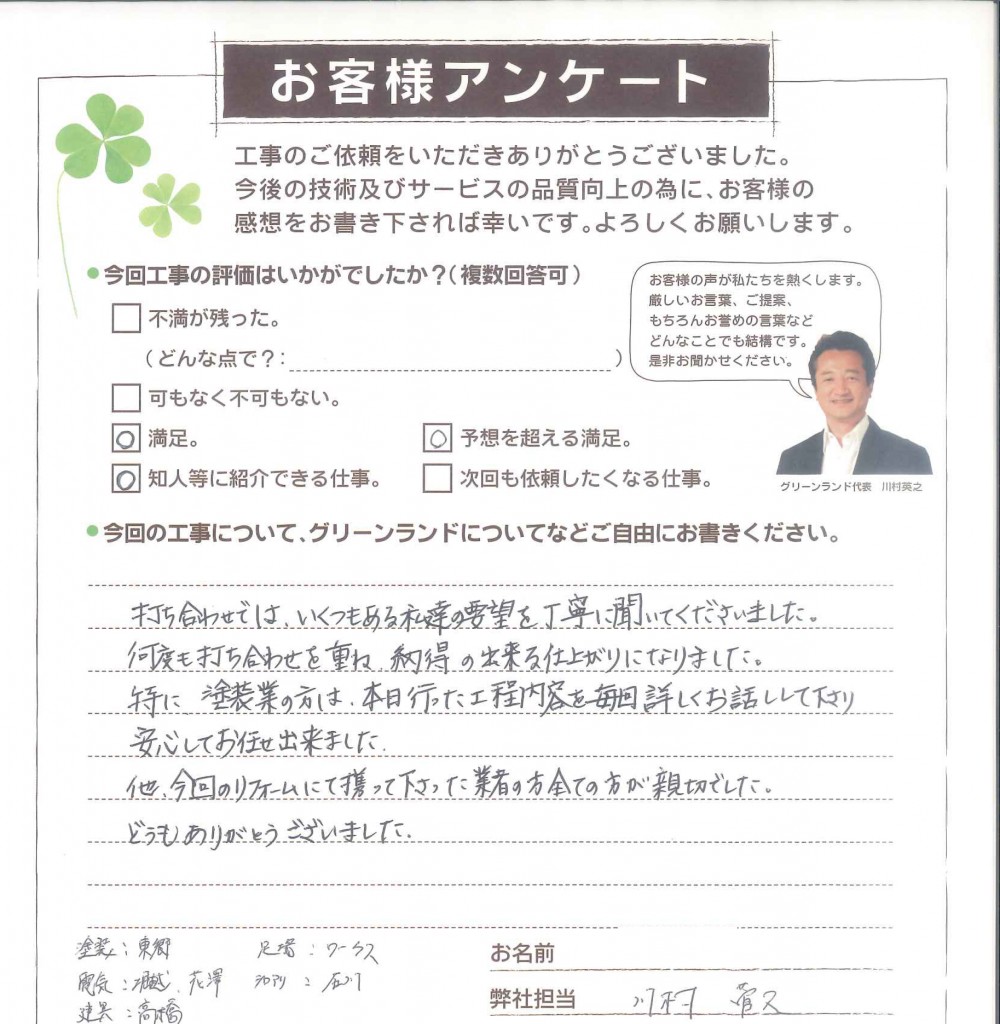 お客様アンケート
工事のご依頼をいただきありがとうございました。
今後の技術及びサービスの品質向上の為に、お客様の
感想をお書き下されば幸いです。よろしくお願いします。
●今回工事の評価はいかがでしたか?(複数回答可)
不満が残った。
(どんな点で?: )
可もなく不可もない。
○ 満足。 ○ 予想を超える満足。
○ 知人等に紹介できる仕事。 次回も依頼したくなる仕事。
お客様の声が私たちを熱くします。
厳しいお言葉、ご提案、
もちろんお誉めの言葉など
どんなことでも結構です。
是非お聞かせください。
グリーンランド代表 川村英之
●今回の工事について、グリーンランドについてなどご自由にお書きください。
打ち合わせでは、いくつもある私達の要望を丁寧に聞いてくださいました。
何度も打ち合わせを重ね、納得の出来る仕上がりになりました。
特に、塗装業の方は、本日行った工程内容を毎回詳しくお話しして下さり
安心してお任せ出来ました。
他、今回のリフォームにて携って下さった業者の方全ての方が親切でした。
どうもありがとうございました。
塗装:東郷 足場:ワークス
電気:堀越、花澤 シロアリ:石川
建具:高橋
お名前
弊社担当 川村